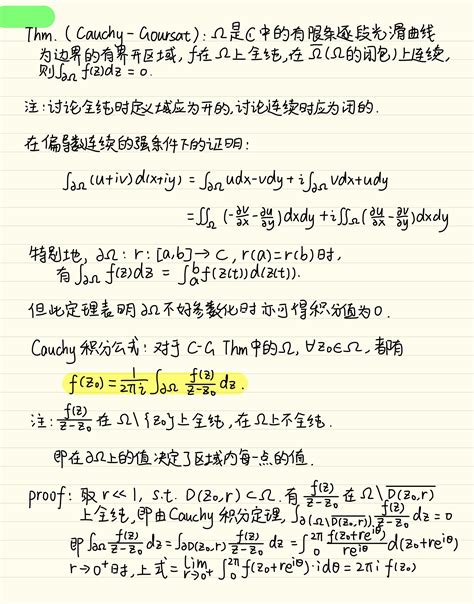 Thm. (Cauchy-Goursat): Ω是ℂ中的有限条逐段光滑曲线
为边界的有界开区域, f在Ω上全纯, 在Ω̄(Ω的闭包)上连续,
则∫_{∂Ω} f(z)dz = 0.
注: 讨论全纯时定义域应为开的, 讨论连续时应为闭的.
在偏导数连续的强条件下的证明:
∫_{∂Ω} (u+iv)d(x+iy) = ∫_{∂Ω} udx-vdy + i∫_{∂Ω} vdx+udy
= ∬_Ω (-∂v/∂x - ∂u/∂y)dxdy + i∬_Ω (∂u/∂x - ∂v/∂y)dxdy
特别地, ∂Ω: r: [a,b]→ℂ, r(a)=r(b)时,
有∫_{∂Ω} f(z)dz = ∫_a^b f(z(t))d(z(t)).
但此定理表明∂Ω不好参数化时亦可得积分值为0.
Cauchy积分公式: 对于C-G Thm中的Ω, ∀z₀∈Ω, 都有
f(z₀) = 1/2πi ∫_{∂Ω} f(z)/z-z₀ dz.
注: f(z)/z-z₀ 在Ω\{z₀}上全纯, 在Ω上不全纯.
即在∂Ω上的值决定了区域内每一点的值.
proof: 取r≪1, s.t. D(z₀,r)⊂Ω. 有 f(z)/z-z₀ 在Ω\D(z₀,r)
上全纯, 即由Cauchy积分定理, ∫_{∂(Ω\D(z₀,r))} f(z)/z-z₀ dz = 0
即∫_{∂Ω} f(z)/z-z₀ dz = ∫_{∂D(z₀,r)} f(z)/z-z₀ dz = ∫_0^{2π} f(z₀+re^{iθ})/re^{iθ} d(z₀+re^{iθ})
r→0⁺时, 上式 = lim_{r→0⁺} ∫_0^{2π} f(z₀+re^{iθ})·idθ = 2πi f(z₀)